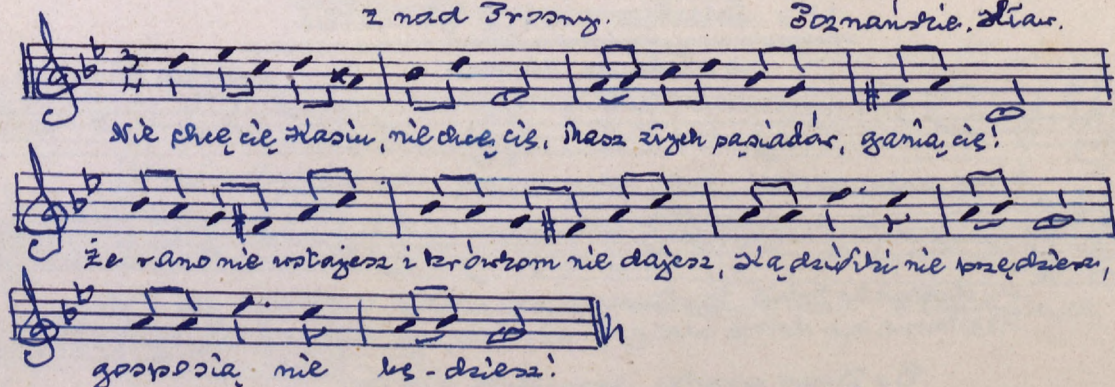 z nad Prosny. Poznańskie.
Nie chcę cię Kasiu, nie chcę cię, masz złych sąsiadów, ganią cię!
Że rano nie wstajesz i krówkom nie dajesz, Kądziółki nie przędziesz,
gosposią nie bę-dziesz!